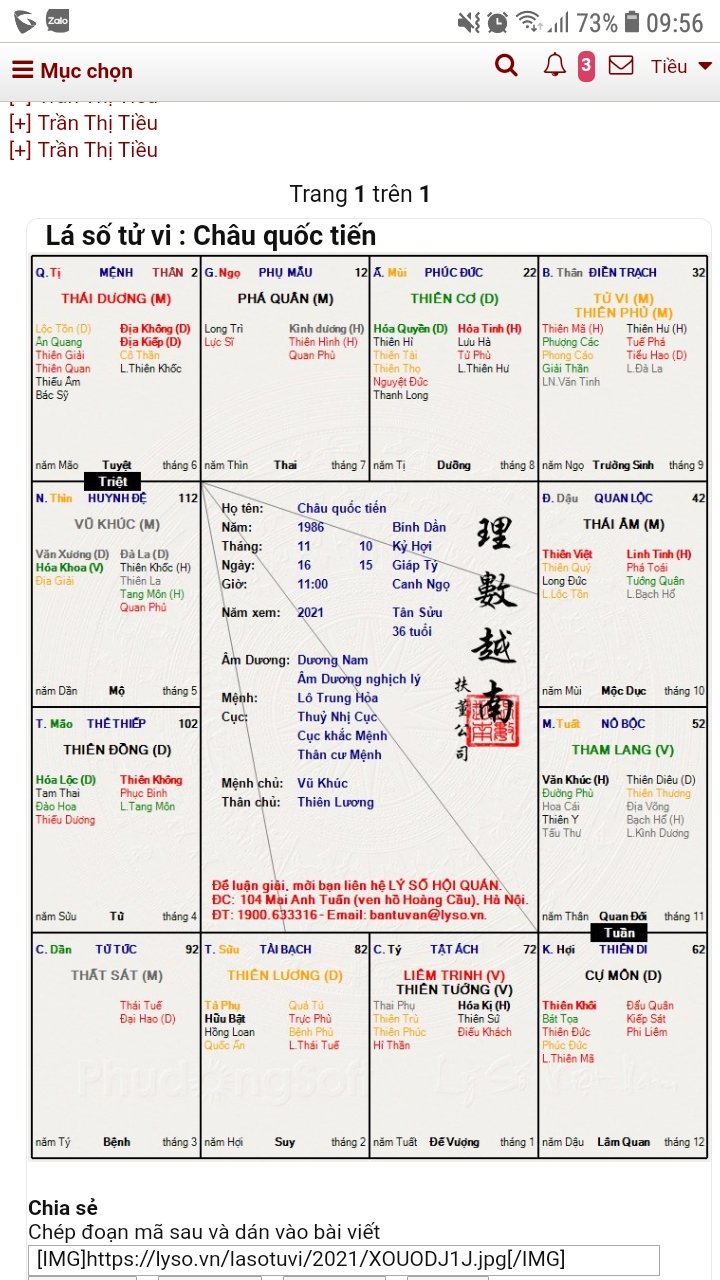 Zalo 73% 09:56
Mục chọn 3 Tiều
[+] Trần Thị Tiều
[+] Trần Thị Tiều
[+] Trần Thị Tiều
Trang 1 trên 1
Lá số tử vi : Châu quốc tiến
Q. Tị MỆNH THÂN 2
THÁI DƯƠNG (M)
Lộc Tồn (D) Địa Không (D)
Ân Quang Địa Kiếp (D)
Thiên Giải Cô Thần
Thiên Quan L.Thiên Khốc
Thiếu Âm
Bác Sỹ
năm Mão Tuyệt tháng 6
G. Ngọ PHỤ MẪU 12
PHÁ QUÂN (M)
Long Trì Kình dương (H)
Lực Sĩ Thiên Hình (H)
Quan Phủ
năm Thìn Thai tháng 7
Ấ. Mùi PHÚC ĐỨC 22
THIÊN CƠ (D)
Hóa Quyền (D) Hỏa Tinh (H)
Thiên Hỉ Lưu Hà
Thiên Tài Tử Phù
Thiên Thọ L.Thiên Hư
Nguyệt Đức
Thanh Long
năm Tị Dưỡng tháng 8
B. Thân ĐIỀN TRẠCH 32
TỬ VI (M)
THIÊN PHỦ (M)
Thiên Mã (H) Thiên Hư (H)
Phượng Các Tuế Phá
Phong Cáo Tiểu Hao (D)
Giải Thần L.Đà La
LN.Văn Tinh
năm Ngọ Trường Sinh tháng 9
Triệt
N. Thìn HUYNH ĐỆ 112
VŨ KHÚC (M)
Văn Xương (D) Đà La (D)
Hóa Khoa (V) Thiên Khốc (H)
Địa Giải Thiên La
Tang Môn (H)
Quan Phủ
năm Dần Mộ tháng 5
Họ tên: Châu quốc tiến
Năm: 1986 Bính Dần
Tháng: 11 10 Kỷ Hợi
Ngày: 16 15 Giáp Tý
Giờ: 11:00 Canh Ngọ
Năm xem: 2021 Tân Sửu
36 tuổi
Âm Dương: Dương Nam
Âm Dương nghịch lý
Mệnh: Lô Trung Hỏa
Cục: Thuỷ Nhị Cục
Cục khắc Mệnh
Thân cư Mệnh
Mệnh chủ: Vũ Khúc
Thân chủ: Thiên Lương
理數越南
扶董公司
Để luận giải, mời bạn liên hệ LÝ SỐ HỘI QUÁN.
ĐC: 104 Mai Anh Tuấn (ven hồ Hoàng Cầu), Hà Nội.
ĐT: 1900.633316 - Email: bantuvan@lyso.vn.
Đ. Dậu QUAN LỘC 42
THÁI ÂM (M)
Thiên Việt Linh Tinh (H)
Thiên Quý Phá Toái
Long Đức Tướng Quân
L.Lộc Tồn L.Bạch Hổ
năm Mùi Mộc Dục tháng 10
T. Mão THÊ THIẾP 102
THIÊN ĐỒNG (D)
Hóa Lộc (D) Thiên Không
Tam Thai Phục Binh
Đào Hoa L.Tang Môn
Thiếu Dương
năm Sửu Tử tháng 4
M. Tuất NÔ BỘC 52
THAM LANG (V)
Văn Khúc (H) Thiên Diêu (D)
Đường Phù Thiên Thương
Hoa Cái Địa Võng
Thiên Y Bạch Hổ (H)
Tấu Thư L.Kình Dương
năm Thân Quan Đới tháng 11
Tuần
C. Dần TỬ TỨC 92
THẤT SÁT (M)
Thái Tuế
Đại Hao (D)
năm Tý Bệnh tháng 3
T. Sửu TÀI BẠCH 82
THIÊN LƯƠNG (D)
Tả Phụ Quả Tú
Hữu Bật Trực Phù
Hồng Loan Bệnh Phù
Quốc Ấn L.Thái Tuế
năm Hợi Suy tháng 2
C. Tý TẬT ÁCH 72
LIÊM TRINH (V)
THIÊN TƯỚNG (V)
Thai Phụ Hóa Kị (H)
Thiên Trù Thiên Sứ
Thiên Phúc Điếu Khách
Hỉ Thần
năm Tuất Đế Vượng tháng 1
K. Hợi THIÊN DI 62
CỰ MÔN (D)
Thiên Khôi Đẩu Quân
Bát Tọa Kiếp Sát
Thiên Đức Phi Liêm
Phúc Đức
L.Thiên Mã
năm Dậu Lâm Quan tháng 12
Chia sẻ
Chép đoạn mã sau và dán vào bài viết
[IMG]https://lyso.vn/lasotuvi/2021/XOUODJ1J.jpg[/IMG]